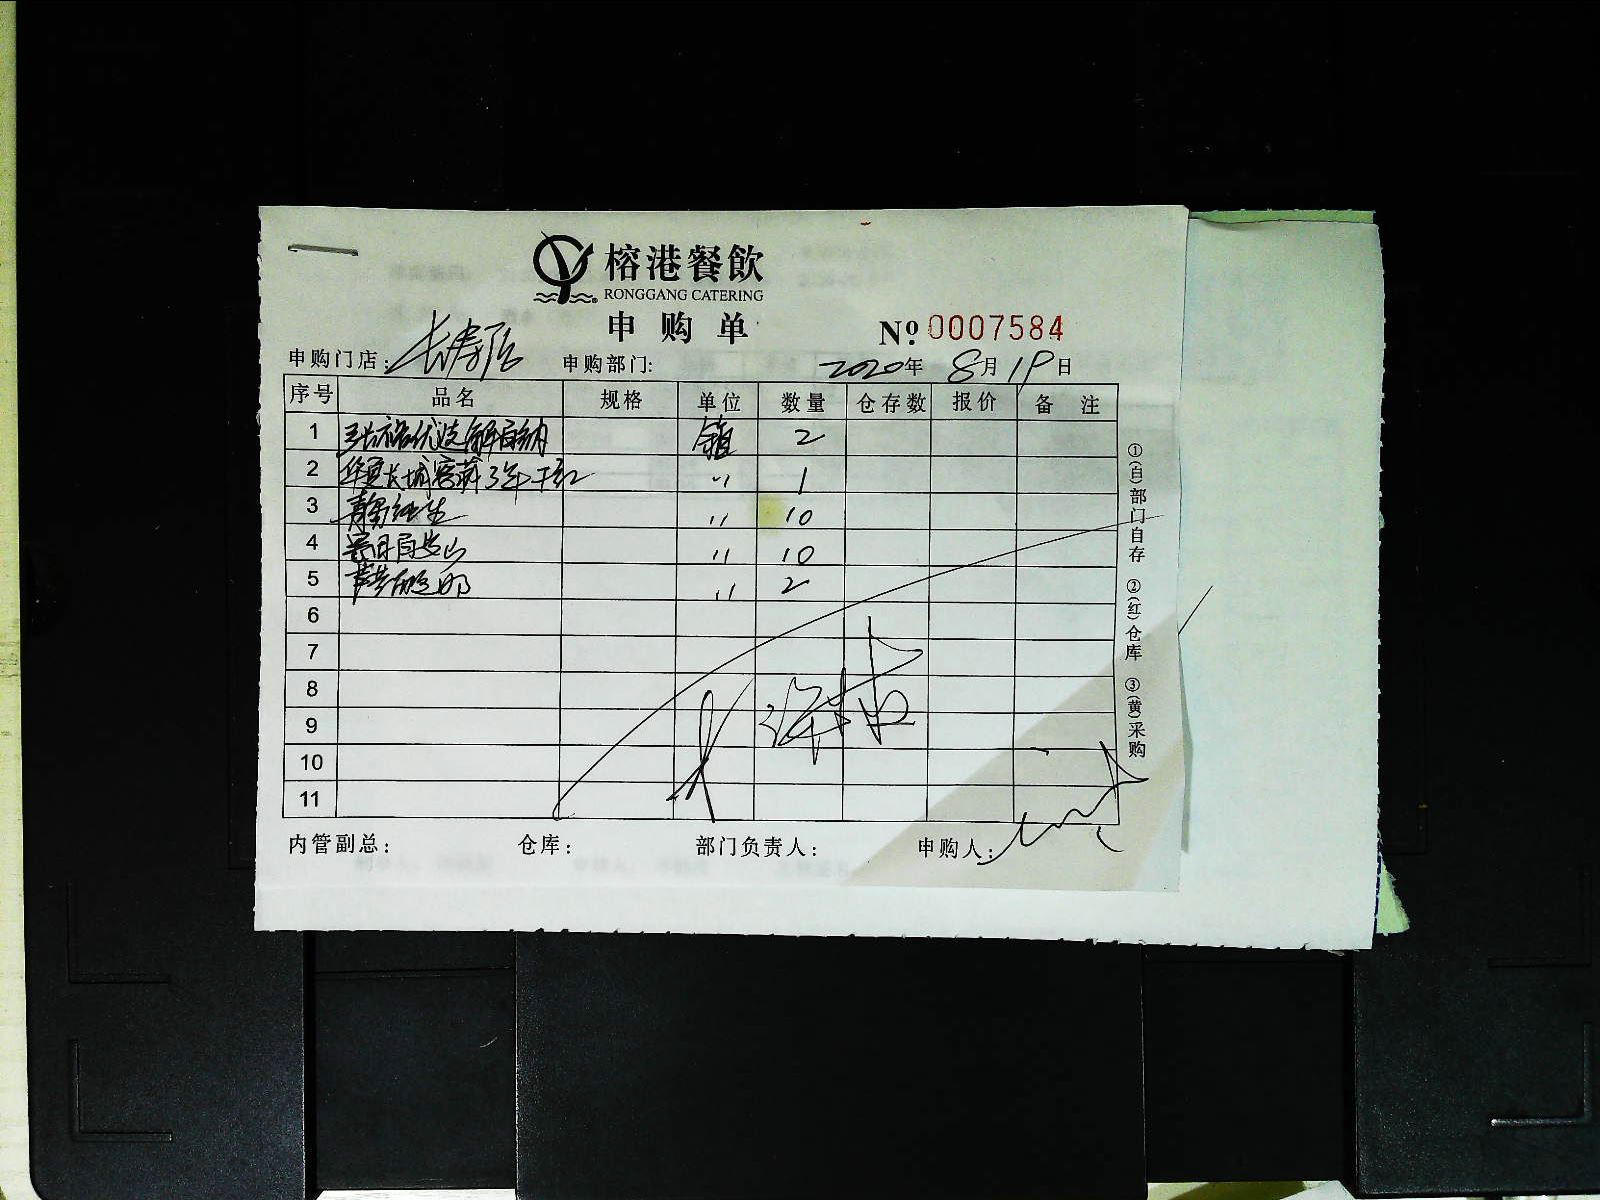 榕港餐飲
RONGGANG CATERING
申购单 №:0007584
申购门店: 长寿店 申购部门: 2020年8月19日
序号 品名 规格 单位 数量 仓存数 报价 备注
1 张裕优选解百纳 箱 2
2 华夏长城窖藏3年干红 〃 1
3 青岛纯生 〃 10
4 〃 10
5 〃 2
6
7
8
9
10
11
内管副总: 仓库: 部门负责人: 申购人:
①(白)部门自存 ②(红)仓库 ③(黄)采购